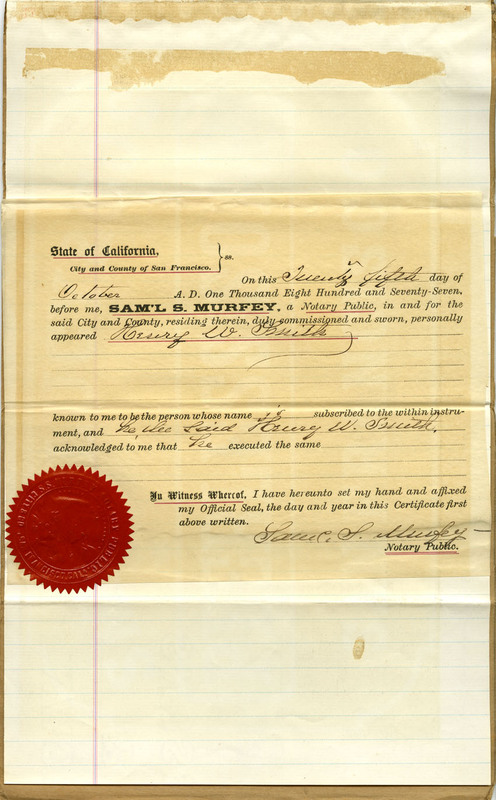 State of California,
City and County of San Francisco. } ss.
On this Twenty fifth day of
October A. D. One Thousand Eight Hundred and Seventy-Seven,
before me, SAM'L S. MURFEY, a Notary Public, in and for the
said City and County, residing therein, duly commissioned and sworn, personally
appeared Henry W. Smith
known to me to be the person whose name is subscribed to the within instru-
ment, and he the said Henry W. Smith,
acknowledged to me that he executed the same
In Witness Whereof, I have hereunto set my hand and affixed
my Official Seal, the day and year in this Certificate first
above written.
Sam'l S. Murfey
Notary Public.